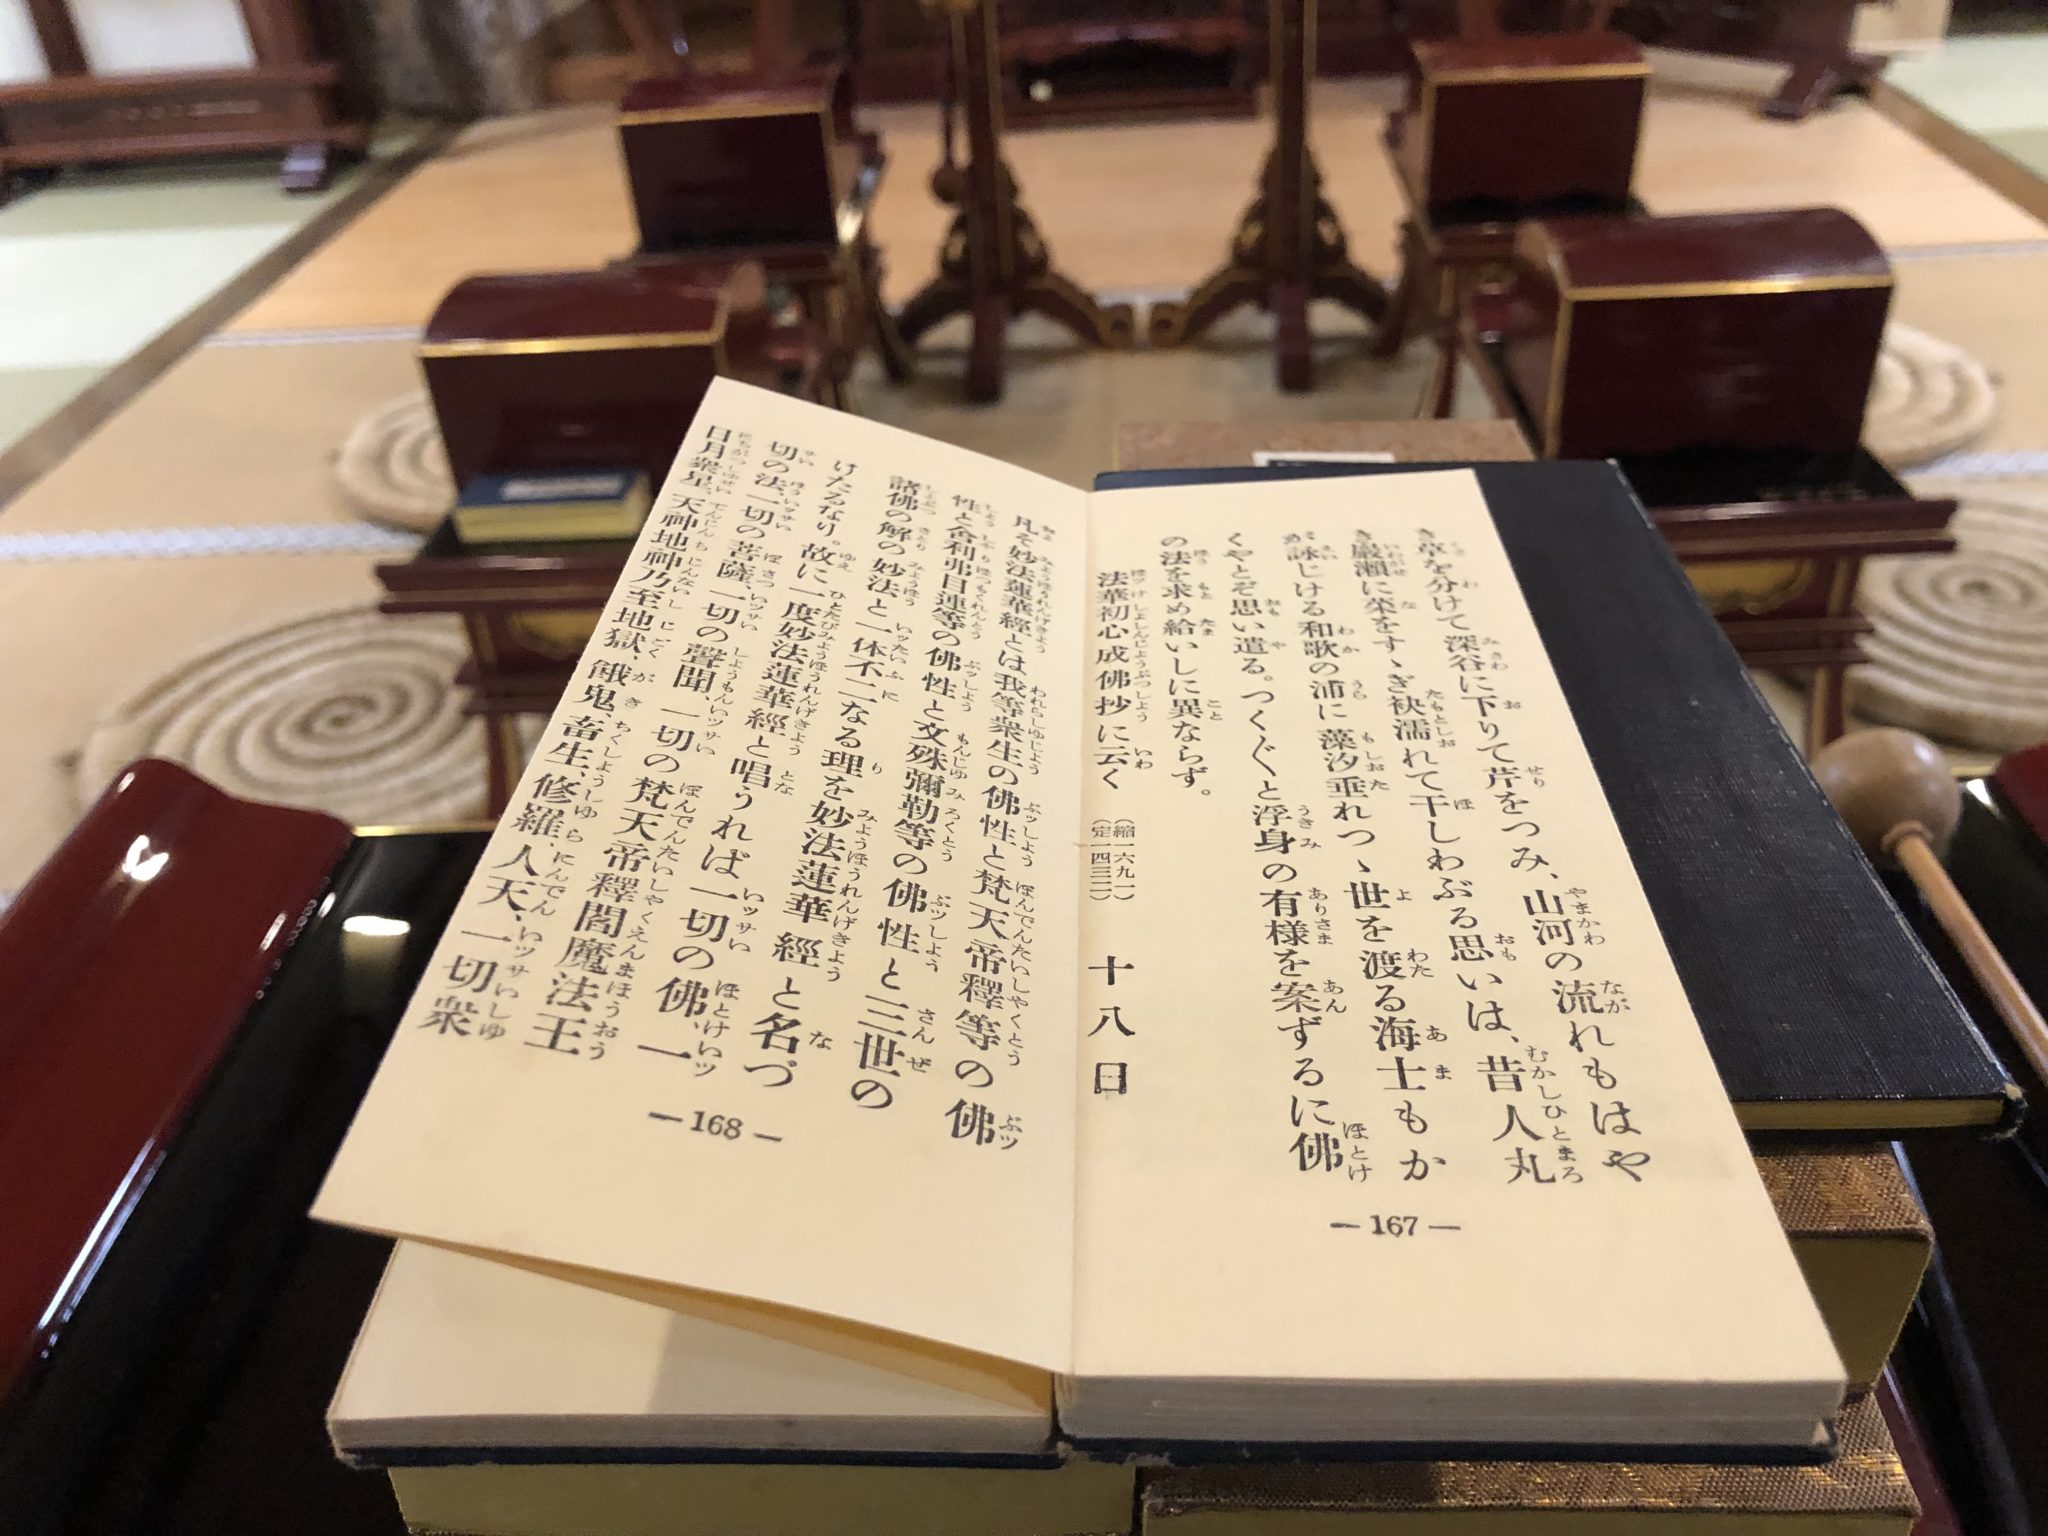 き草を分けて深谷に下りて芹をつみ、山河の流れもはや
き巖瀬に菜をすゝぎ袂濡れて干しわぶる思いは、昔人丸
が詠じける和歌の浦に藻汐垂れつゝ世を渡る海士もか
くやとぞ思い遣る。つくぐと浮身の有様を案ずるに佛
の法を求め給いしに異ならず。
法華初心成佛抄に云く (縮一六九一) (定一四三二) 十八日
—167—
凡そ妙法蓮華經とは我等衆生の佛性と梵天帝釋等の佛
性と舎利弗目連等の佛性と文殊彌勒等の佛性と三世の
諸佛の解の妙法と一体不二なる理を妙法蓮華經と名づ
けたるなり。故に一度妙法蓮華經と唱うれば一切の佛、一
切の法、一切の菩薩、一切の聲聞、一切の梵天帝釋閻魔法王
日月衆星、天神地神乃至地獄、餓鬼、畜生、修羅、人天、一切衆
—168—